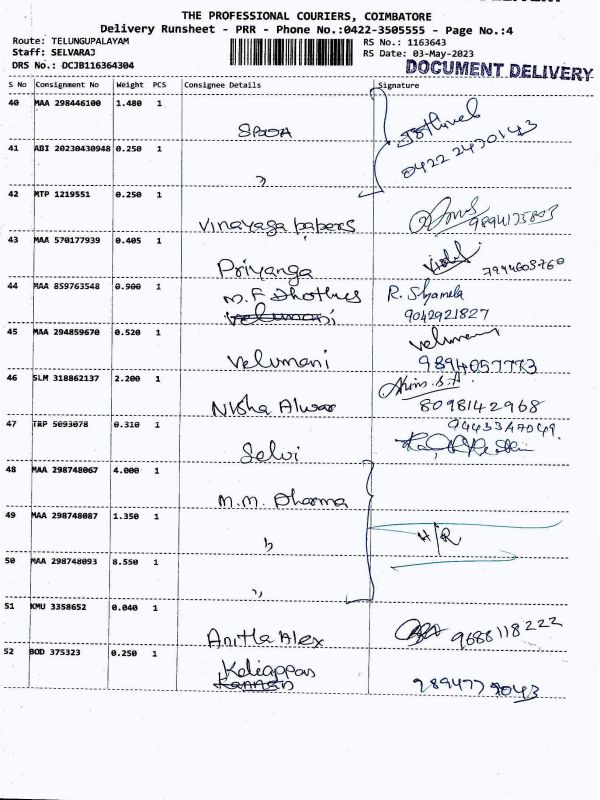 THE PROFESSIONAL COURIERS, COIMBATORE
Delivery Runsheet - PRR - Phone No.:0422-3505555 - Page No.:4
Route: TELUNGUPALAYAM
Staff: SELVARAJ
DRS No.: DCJB116364304
RS No.: 1163643
RS Date: 03-May-2023
DOCUMENT DELIVERY
S No Consignment No Weight PCS Consignee Details Signature
40 MAA 298446100 1.480 1
0422 2470143
41 ABI 20230430948 0.250 1
"
42 MTP 1219551 0.250 1
Vinayaga papers
43 MAA 570177939 0.405 1
Priyanga 7994603760
44 MAA 859763548 0.900 1
M.F R. Shamela
9042921827
45 MAA 294859670 0.520 1
Velumani Velumani
9894057773
46 SLM 318862137 2.200 1
Nisha Alwar 8098142968
47 TRP 5093078 0.310 1
Selvi
48 MAA 298748067 4.000 1
M.M. Dharma
49 MAA 298748087 1.350 1
" H/R
50 MAA 298748093 8.550 1
"
51 KMU 3358652 0.040 1
Anitha Alex 9688118222
52 BOD 375323 0.250 1
Kaliappan
Kannan 9894779043